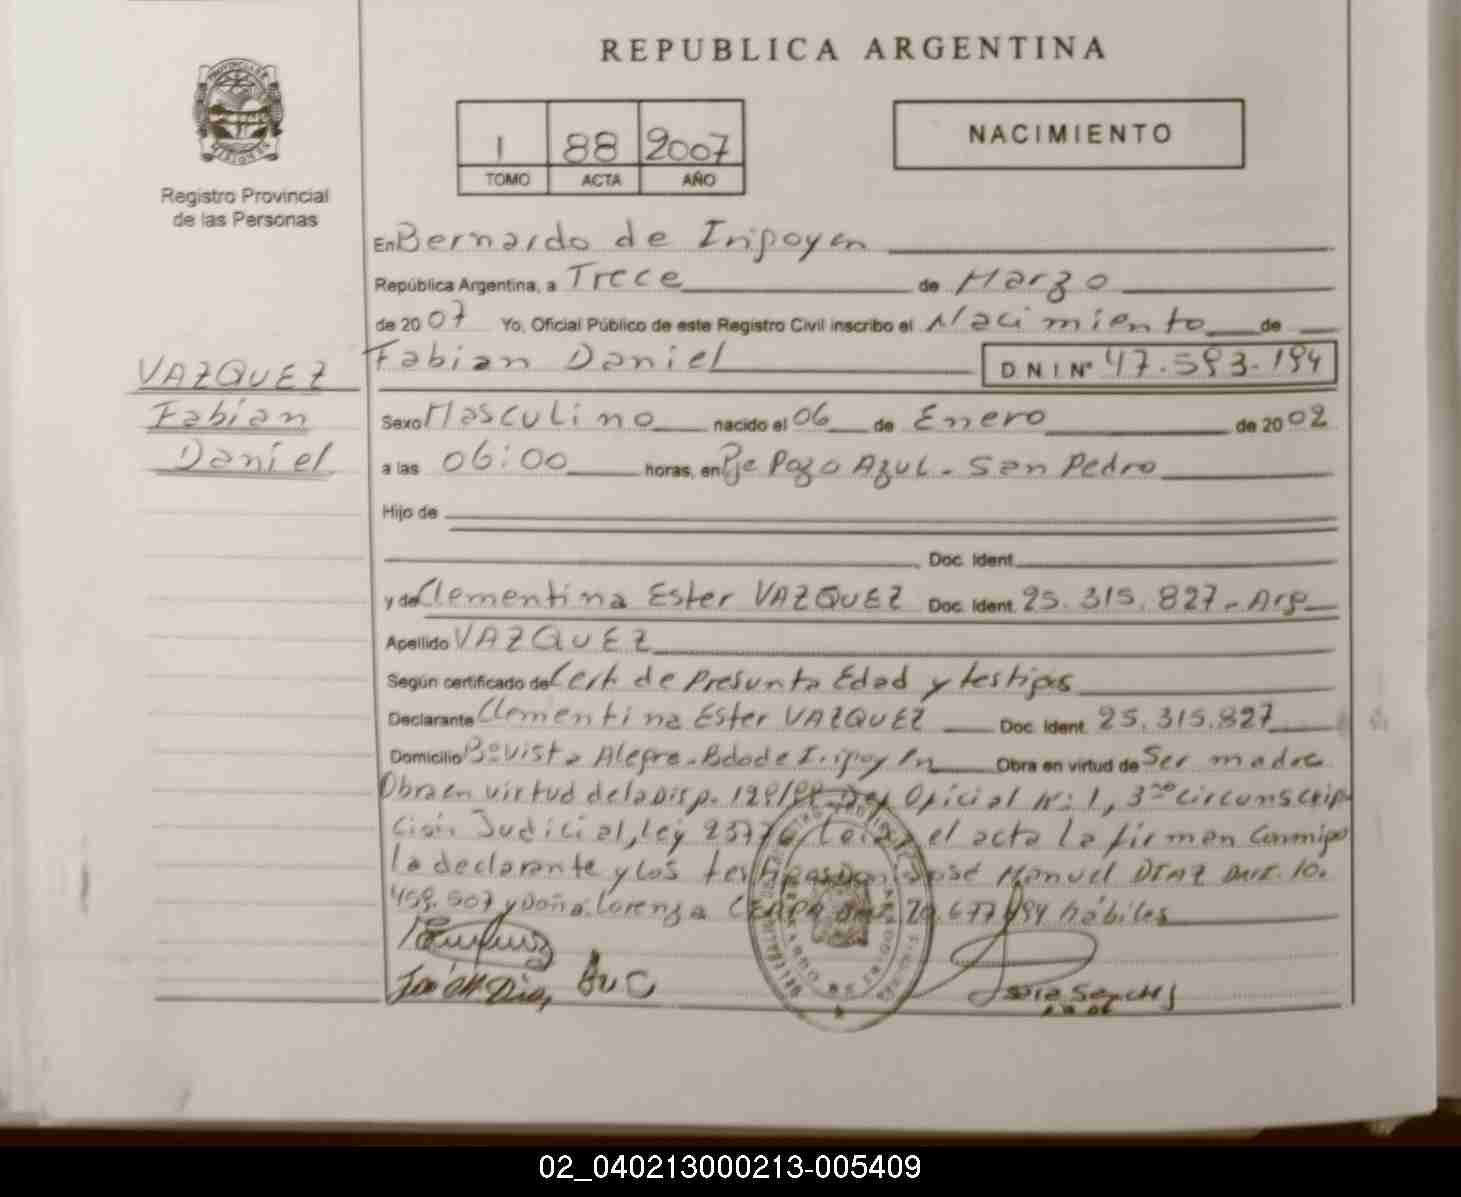 REPUBLICA ARGENTINA
1 88 2007
TOMO ACTA AÑO
NACIMIENTO
Registro Provincial
de las Personas
VAZQUEZ
Fabian
Daniel
En Bernardo de Irigoyen
República Argentina, a Trece de Marzo
de 2007 Yo, Oficial Público de este Registro Civil inscribo el Nacimiento de
Fabian Daniel D N I Nº 47.593.194
Sexo Masculino nacido el 06 de Enero de 2002
a las 06:00 horas, en Pje Pozo Azul - San Pedro
Hijo de
Doc. Ident.
y de Clementina Ester VAZQUEZ Doc. Ident. 25.315.827 - Arg
Apellido VAZQUEZ
Según certificado de Cert. de Presunta Edad y testigos
Declarante Clementina Ester VAZQUEZ Doc. Ident. 25.315.827
Domicilio Bº Vista Alegre - Bdo de Irigoyen Obra en virtud de Ser madre
Obra en virtud de la Disp. Oficial Nº: 1, 3ra circunscrip
ción Judicial, ley el acta la firman conmigo
la declarante y los testigos Don José Manuel DIAZ 10.
y Doña Lorenza hábiles
02_040213000213-005409